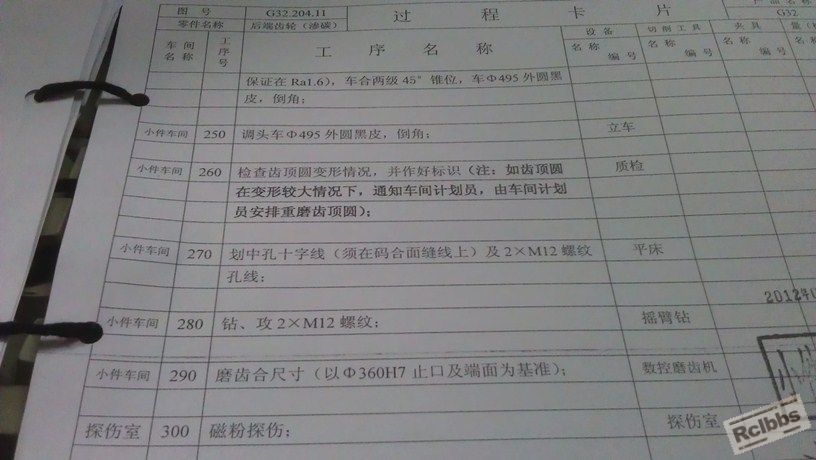 产品名称
图 号 G32.204.11 过 程 卡 片 G32
零件名称 后端齿轮（渗碳）
车 间 名 称 工序号 工 序 名 称 设 备 切 削 工 具 夹 具
名 称 编 号 名 称 编 号 名 称 编 号
保证在 Ra1.6），车合两级 45° 锥位，车Φ495 外圆黑
皮，倒角；
小件车间 250 调头车Φ495 外圆黑皮，倒角； 立车
小件车间 260 检查齿顶圆变形情况，并作好标识（注：如齿顶圆 质检
在变形较大情况下，通知车间计划员，由车间计划
员安排重磨齿顶圆）；
小件车间 270 划中孔十字线（须在码合面缝线上）及 2×M12 螺纹 平床
孔线；
2012年
小件车间 280 钻、攻 2×M12 螺纹； 摇臂钻
小件车间 290 磨齿合尺寸（以Φ360H7 止口及端面为基准）； 数控磨齿机
探伤室 300 磁粉探伤； 探伤室
Rclbbs